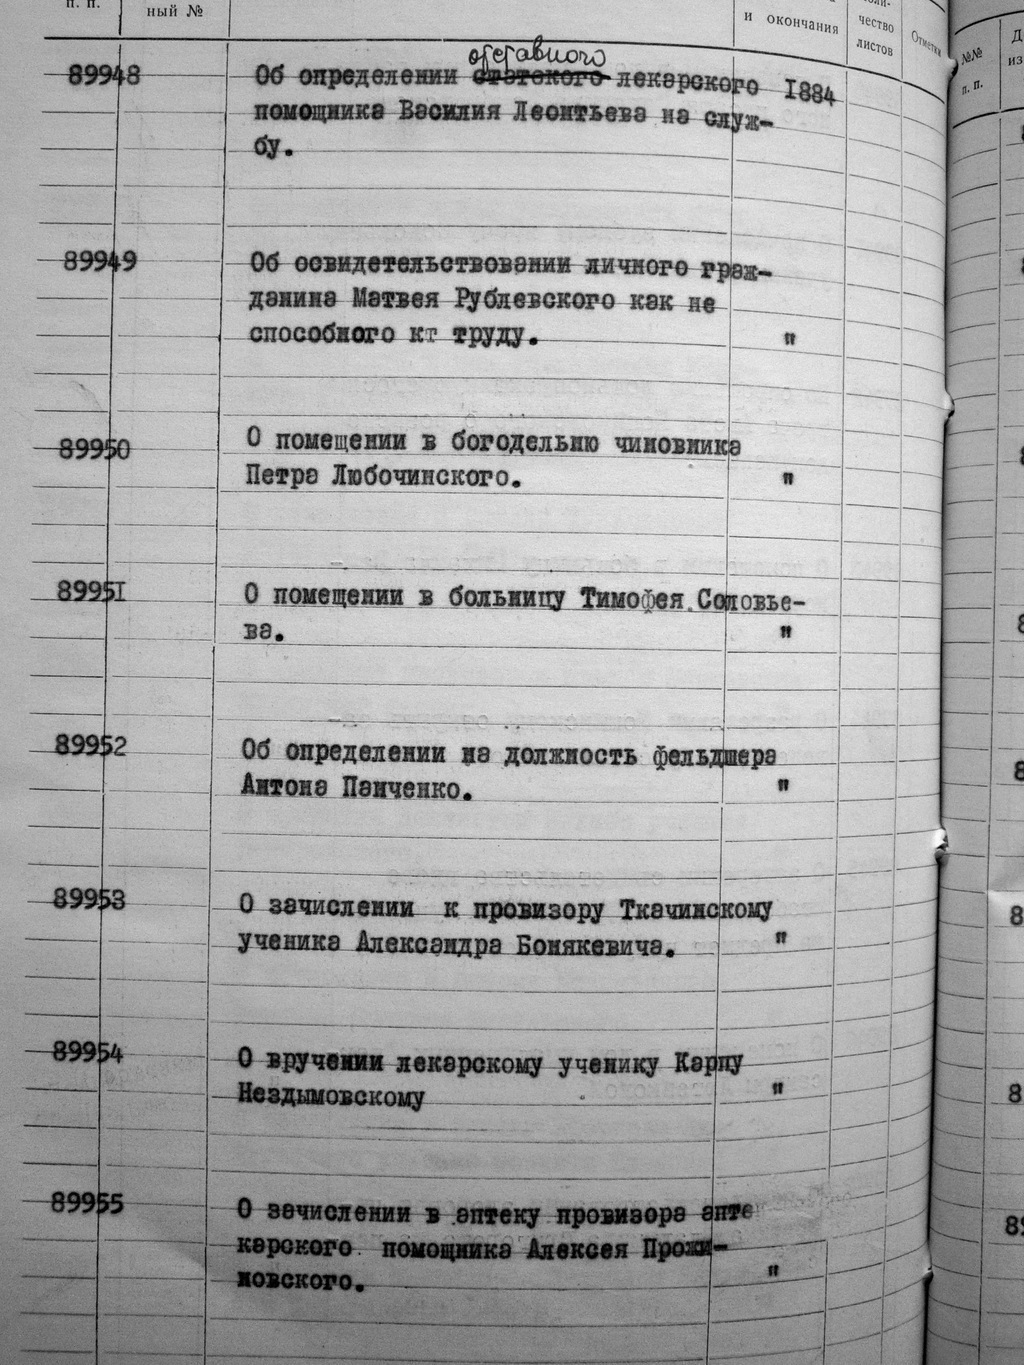 п. п.
ный №
и окончания
чество
листов
Отметки
№№
п. п.
отставного
89948 Об определении статского лекарского 1884
помощника Василия Леонтьева на служ-
бу.
89949 Об освидетельствовании личного граж-
данина Матвея Рублевского как не
способного кт труду. "
89950 О помещении в богодельню чиновника
Петра Любочинского. "
8995I О помещении в больницу Тимофея Соловье-
ва. "
89952 Об определении на должность фельдшера
Антона Панченко. "
89953 О зачислении к провизору Ткачинскому
ученика Александра Бонякевича. "
89954 О вручении лекарскому ученику Карпу
Нездымовскому "
89955 О зачислении в аптеку провизора апте
карского помощника Алексея Прожи-
новского. "